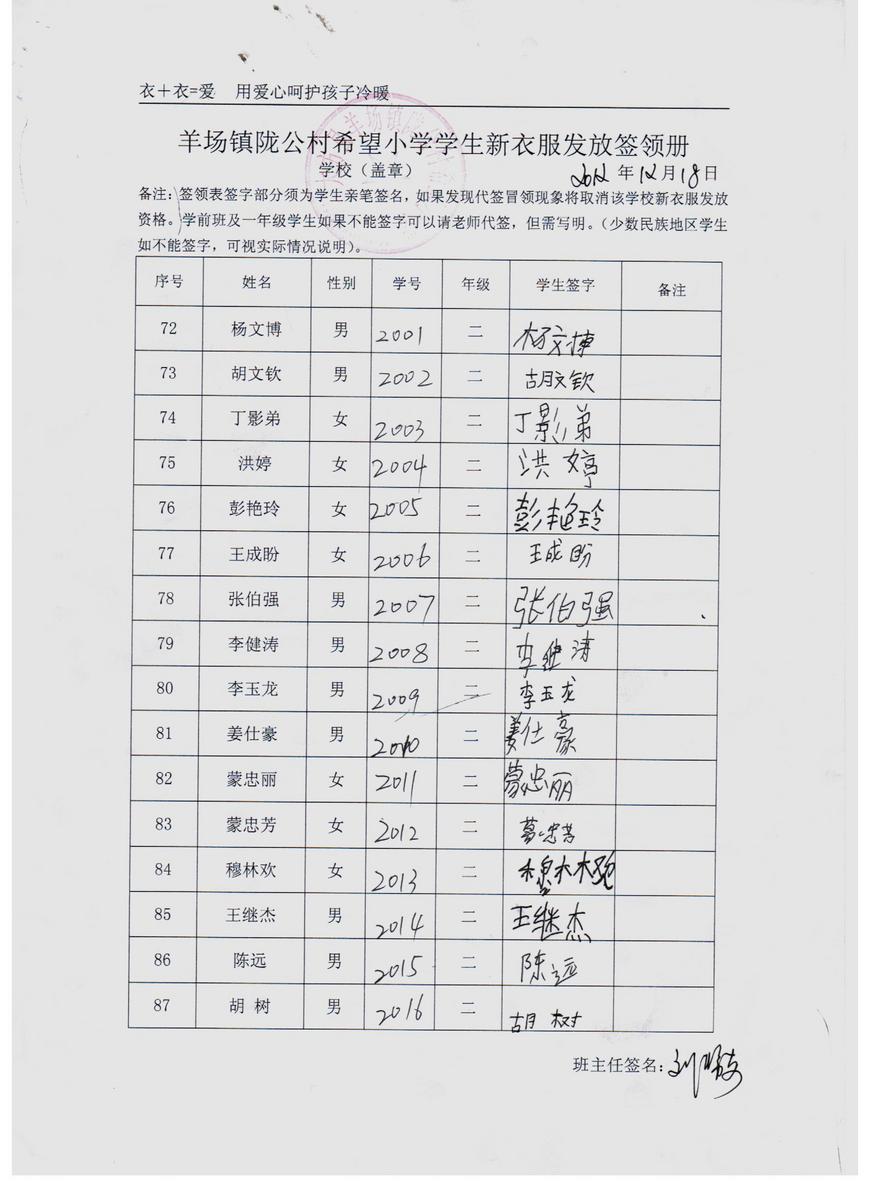 衣＋衣=爱 用爱心呵护孩子冷暖
羊场镇陇公村希望小学学生新衣服发放签领册
学校（盖章） 2012年12月18日
备注：签领表签字部分须为学生亲笔签名，如果发现代签冒领现象将取消该学校新衣服发放
资格。学前班及一年级学生如果不能签字可以请老师代签，但需写明。（少数民族地区学生
如不能签字，可视实际情况说明）。
序号 姓名 性别 学号 年级 学生签字 备注
72 杨文博 男 2001 二 杨文博
73 胡文钦 男 2002 二 胡文钦
74 丁影弟 女 2003 二 丁影弟
75 洪婷 女 2004 二 洪婷
76 彭艳玲 女 2005 二 彭艳玲
77 王成盼 女 2006 二 王成盼
78 张伯强 男 2007 二 张伯强
79 李健涛 男 2008 二 李健涛
80 李玉龙 男 2009 二 李玉龙
81 姜仕豪 男 2010 二 姜仕豪
82 蒙忠丽 女 2011 二 蒙忠丽
83 蒙忠芳 女 2012 二 蒙忠芳
84 穆林欢 女 2013 二 穆林
85 王继杰 男 2014 二 王继杰
86 陈远 男 2015 二 陈远
87 胡 树 男 2016 二 胡 树
班主任签名：刘